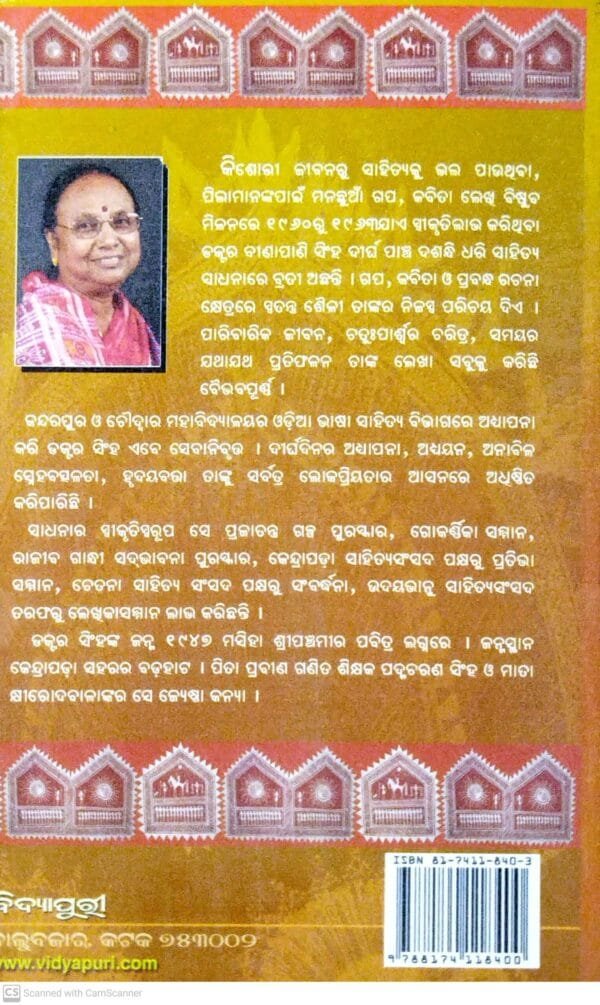 କିଶୋରୀ ଜୀବନରୁ ସାହିତ୍ୟକୁ ଭଲ ପାଉଥିବା,
ପିଲାମାନଙ୍କପାଇଁ ମନଛୁଆଁ ଗପ, କବିତା ଲେଖି ବିଷୁବ
ମିଳନରେ ୧୯୬୦ରୁ ୧୯୬୩ଯାଏ ସ୍ୱୀକୃତିଲାଭ କରିଥିବା
ଡକ୍ଟର ବୀଣାପାଣି ସିଂହ ଦୀର୍ଘ ପାଞ୍ଚ ଦଶନ୍ଧି ଧରି ସାହିତ୍ୟ
ସାଧନାରେ ବ୍ରତୀ ଅଛନ୍ତି । ଗପ, କବିତା ଓ ପ୍ରବନ୍ଧ ରଚନା
କ୍ଷେତ୍ରରେ ସ୍ୱତନ୍ତ୍ର ଶୈଳୀ ତାଙ୍କର ନିଜସ୍ୱ ପରିଚୟ ଦିଏ ।
ପାରିବାରିକ ଜୀବନ, ଚତୁଃପାର୍ଶ୍ୱର ଚରିତ୍ର, ସମୟର
ଯଥାଯଥ ପ୍ରତିଫଳନ ତାଙ୍କ ଲେଖା ସବୁକୁ କରିଛି
ବୈଭବପୂର୍ଣ୍ଣ ।
କନ୍ଦରପୁର ଓ ଚୌଦ୍ୱାର ମହାବିଦ୍ୟାଳୟର ଓଡ଼ିଆ ଭାଷା ସାହିତ୍ୟ ବିଭାଗରେ ଅଧ୍ୟାପନା
କରି ଡକ୍ଟର ସିଂହ ଏବେ ସେବାନିବୃତ୍ତ । ଦୀର୍ଘଦିନର ଅଧ୍ୟାପନା, ଅଧ୍ୟୟନ, ଅନାବିଳ
ସ୍ନେହବତ୍ସଳତା, ହୃଦୟବତ୍ତା ତାଙ୍କୁ ସର୍ବତ୍ର ଲୋକପ୍ରିୟତାର ଆସନରେ ଅଧିଷ୍ଠିତ
କରିପାରିଛି ।
ସାଧନାର ସ୍ୱୀକୃତିସ୍ୱରୂପ ସେ ପ୍ରଜାତନ୍ତ୍ର ଗଳ୍ପ ପୁରସ୍କାର, ଗୋକର୍ଣ୍ଣିକା ସମ୍ମାନ,
ରାଜୀବ ଗାନ୍ଧୀ ସଦ୍‌ଭାବନା ପୁରସ୍କାର, କେନ୍ଦ୍ରାପଡ଼ା ସାହିତ୍ୟସଂସଦ ପକ୍ଷରୁ ପ୍ରତିଭା
ସମ୍ମାନ, ଚେତନା ସାହିତ୍ୟ ସଂସଦ ପକ୍ଷରୁ ସଂବର୍ଦ୍ଧନା, ଉଦୟଭାନୁ ସାହିତ୍ୟସଂସଦ
ତରଫରୁ ଲେଖିକାସମ୍ମାନ ଲାଭ କରିଛନ୍ତି ।
ଡକ୍ଟର ସିଂହଙ୍କ ଜନ୍ମ ୧୯୪୭ ମସିହା ଶ୍ରୀପଞ୍ଚମୀର ପବିତ୍ର ଲଗ୍ନରେ । ଜନ୍ମସ୍ଥାନ
କେନ୍ଦ୍ରାପଡ଼ା ସହରର ବଡ଼ହାଟ । ପିତା ପ୍ରବୀଣ ଗଣିତ ଶିକ୍ଷକ ପଦ୍ମଚରଣ ସିଂହ ଓ ମାତା
କ୍ଷୀରୋଦବାଳାଙ୍କର ସେ ଜ୍ୟେଷ୍ଠା କନ୍ୟା ।
ISBN 81-7411-840-3
9 788174 118400
ବିଦ୍ୟାପୁରୀ
ବାଲୁବଜାର, କଟକ ୭୫୩୦୦୨
www.vidyapuri.com
CS Scanned with CamScanner